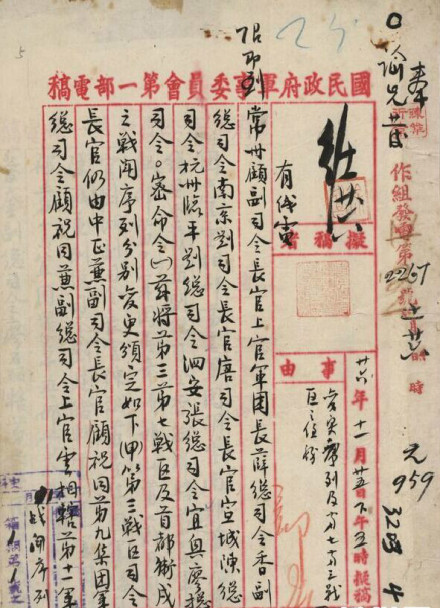 國民政府軍事委員會第一部電稿
作組發電第2257號 時
959
3288
廿六年十一月廿五日下午五時擬稿
事由
擬稿者
有代電
限即到
常州顧副司令長官上官軍團長薛總司令香副
總司令南京劉司令長官唐司令長官宣城陳總
司令杭州臨平劉總司令泗安張總司令宜興廖總
司令。密命令(一)茲將第三第七戰區及首都衛戍
之戰鬥序列分別變更頒定如下(甲)第三戰區司令
長官仍由中正兼副司令長官顧祝同第九集團軍
總司令顧祝同兼副總司令上官雲相轄第十一軍
戰鬥序列